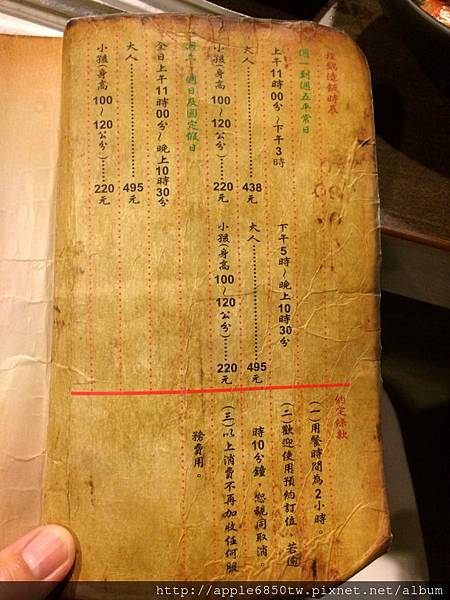 煙鍋造飯時辰
週一到週五平常日
上午11時00分~下午3時
大人……………………438元
小孩(身高100~120公分)……220元
下午5時~晚上10時30分
大人……………………495元
小孩(身高100~120公分)……220元
週六、週日及國定假日
全日上午11時00分~晚上10時30分
大人……………………495元
小孩(身高100~120公分)……220元
約定條款
(一)用餐時間為2小時。
(二)歡迎使用預約訂位，若逾
時10分鐘，恕視同取消。
(三)以上消費不再加收任何服
務費用。
http://apple6850tw.pixnet.net/album